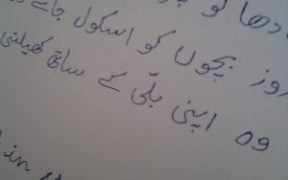 کو
روز بچوں کو اسکول جاتے
وہ اپنی بلّی کے ساتھ کھیلتی
in